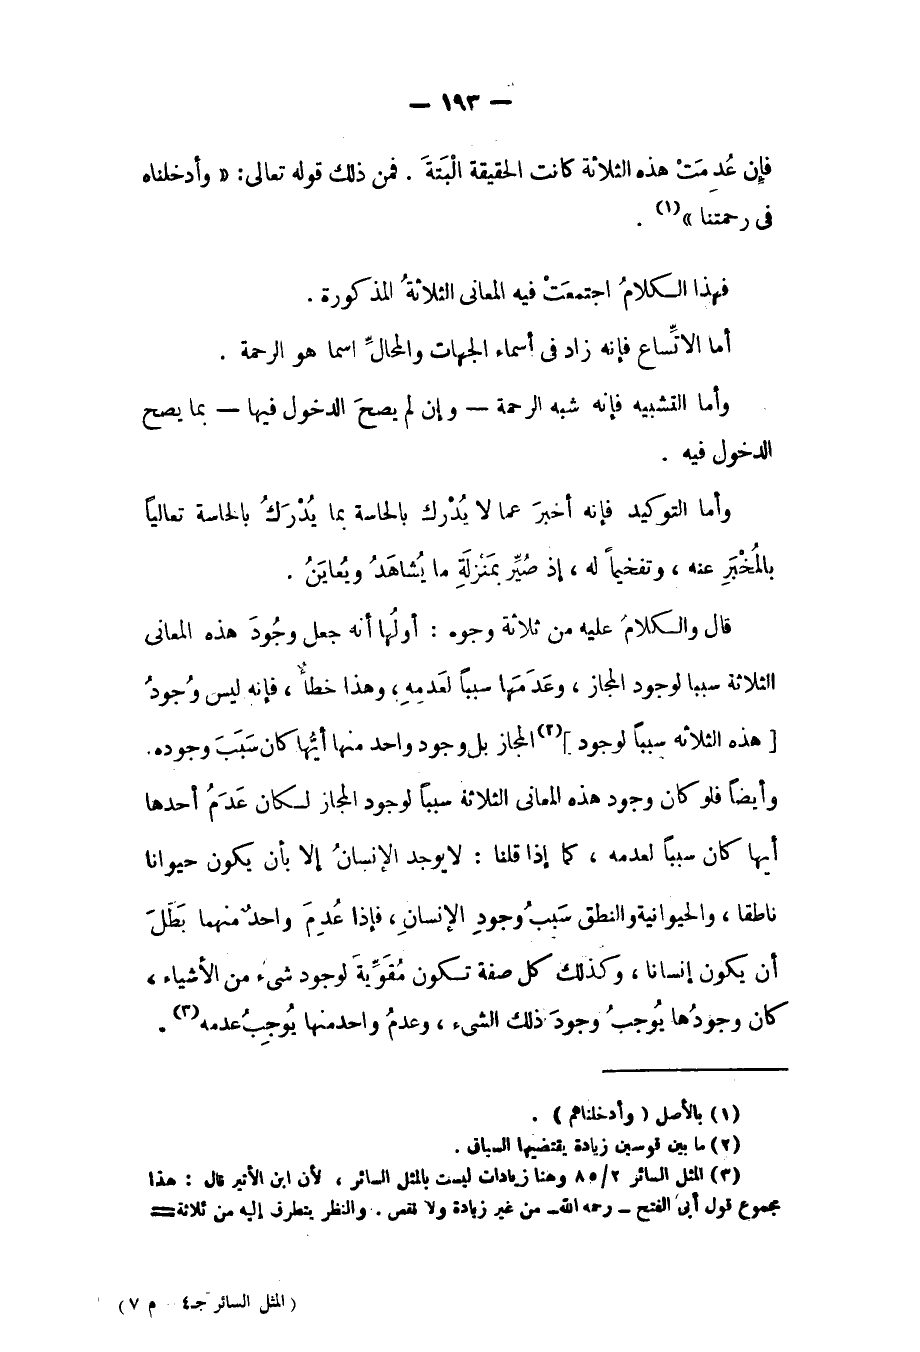 — ١٩٣ —
فإن عُدِمَتْ هذه الثلاثة كانت الحقيقة الْبَتَةَ . فمن ذلك قوله تعالى: « وأدخلناه
فى رحمتنا »(١) .
فهذا الكلامُ اجتمعَتْ فيه المعانى الثلاثةُ المذكورة .
أما الاتِّساع فإنه زاد فى أسماء الجهات والمحالِّ اسما هو الرحمة .
وأما التشبيه فإنه شبه الرحمة — وإن لم يصحَّ الدخول فيها — بما يصح
الدخول فيه .
وأما التوكيد فإنه أخبرَ عما لا يُدْرك بالحاسة بما يُدْرَكُ بالحاسة تعالياً
بالمُخْبَرِ عنه ، وتفخيماً له ، إذ صُيِّر بمَنْزلَةِ ما يُشاهَدُ ويُعايَنُ .
قال والكلامُ عليه من ثلاثة وجوه : أولُها أنه جعل وجُودَ هذه المعانى
الثلاثة سببا لوجود المجاز ، وعَدَمَها سبباً لعَدمِهِ ، وهذا خطأٌ ، فإنه ليس وُجودُ
[ هذه الثلاثه سبباً لوجود ](٢) المجاز بل وجود واحد منها أيُّها كان سَبَبَ وجوده.
وأيضاً فلو كان وجود هذه المعانى الثلاثة سبباً لوجود المجاز لكان عَدَمُ أحدها
أيها كان سبباً لعدمه ، كما إذا قلنا : لايوجد الإنسانُ إلا بأن يكون حيوانا
ناطقا ، والحيوانيةوالنطق سَببُ وجودِ الإنسانِ ، فإذا عُدِمَ واحدٌ منهما بَطَلَ
أن يكون إنسانا ، وكذلك كل صفة تكون مُقَوِّيةً لوجود شىء من الأشياء ،
كان وجودُها يُوجبُ وجودَ ذلك الشىء ، وعدمُ واحدمنها يُوجِبُ عدمه(٣) .
(١) بالأصل ( وأدخلناهم ) .
(٢) ما بين قوسين زيادة يقتضيها السياق .
(٣) المثل السائر ٨٥/٢ وهنا زيادات ليست بالمثل السائر ، لأن ابن الأثير قال : هذا
مجموع قول أبى الفتح ـ رحمه الله ـ من غير زيادة ولا نقص . والنظر يتطرف إليه من ثلاثة=
( المثل السائر جـ٤ م ٧ )